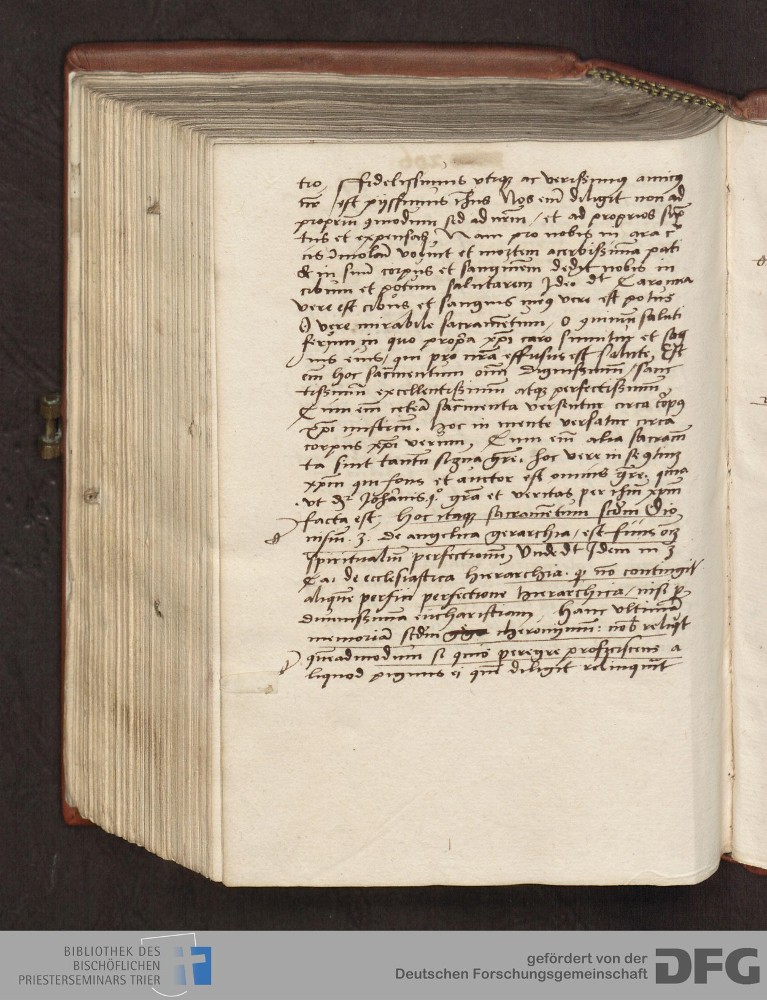 tio, Fidelissimus utiqꝫ ac verissimus amicus
nr̄ est pyssimus ih̄us Nos em̄ diligit non ad
propriū qumodum sed ad nr̄m / et ad proprios sup̄
tus et expensas, Nam pro nobis in ara c
cis īmolari voluit et mortem acerbissimam pati
& in suū corpus et sanguinem dedit nobis in
cibum et potum salutarem Ideo dt Caro mea
vere est cibus et sanguis meus vere est potus
O vere mirabile sacramētum, O qumum saluti
ferum in quo propa xp̄i caro sumitur et sang
uis eius, qui pro nr̄a effusus est salute, Est
em̄ hoc sacm̄entum om̄i dignissimum / sanc
tissimum excellentissimum atqꝫ perfectissimum
Cum em̄ cetera sacm̄enta versentur circa corpus
xp̄i misticū. hoc in mente versatur circa
corpus xp̄i verum, Cum em̄ alia sacram̄
ta sint tantū signa gr̄e. hoc vere in se qtinet
xp̄m qui fons et auctor est omnis gr̄e. quia
ut dr̄ Johannis.1.° gr̄a et veritas per ih̄m xp̄m
facta est, hoc itaqꝫ sacramētum scdm̄ Dio
nisiu. 3. de angelica gerarchia / est finis om̄
spiritualiū perfectionum, Unde dt Idem in 3
Ca. de ecclesiastica hierarchia. qꝫ nō contingit
aliquē perfici perfectione hierarchica / nisi per
diuinissimam eucharistiam, Hanc ultimam
memoriā scdm̄ hieronimum: nob̄ reliqt
quēadmodum si quis peregre proficiscens a
liquod pignus ei quē diligit relinquat
BIBLIOTHEK DES
BISCHÖFLICHEN
PRIESTERSEMINARS TRIER
gefördert von der
Deutschen Forschungsgemeinschaft DFG